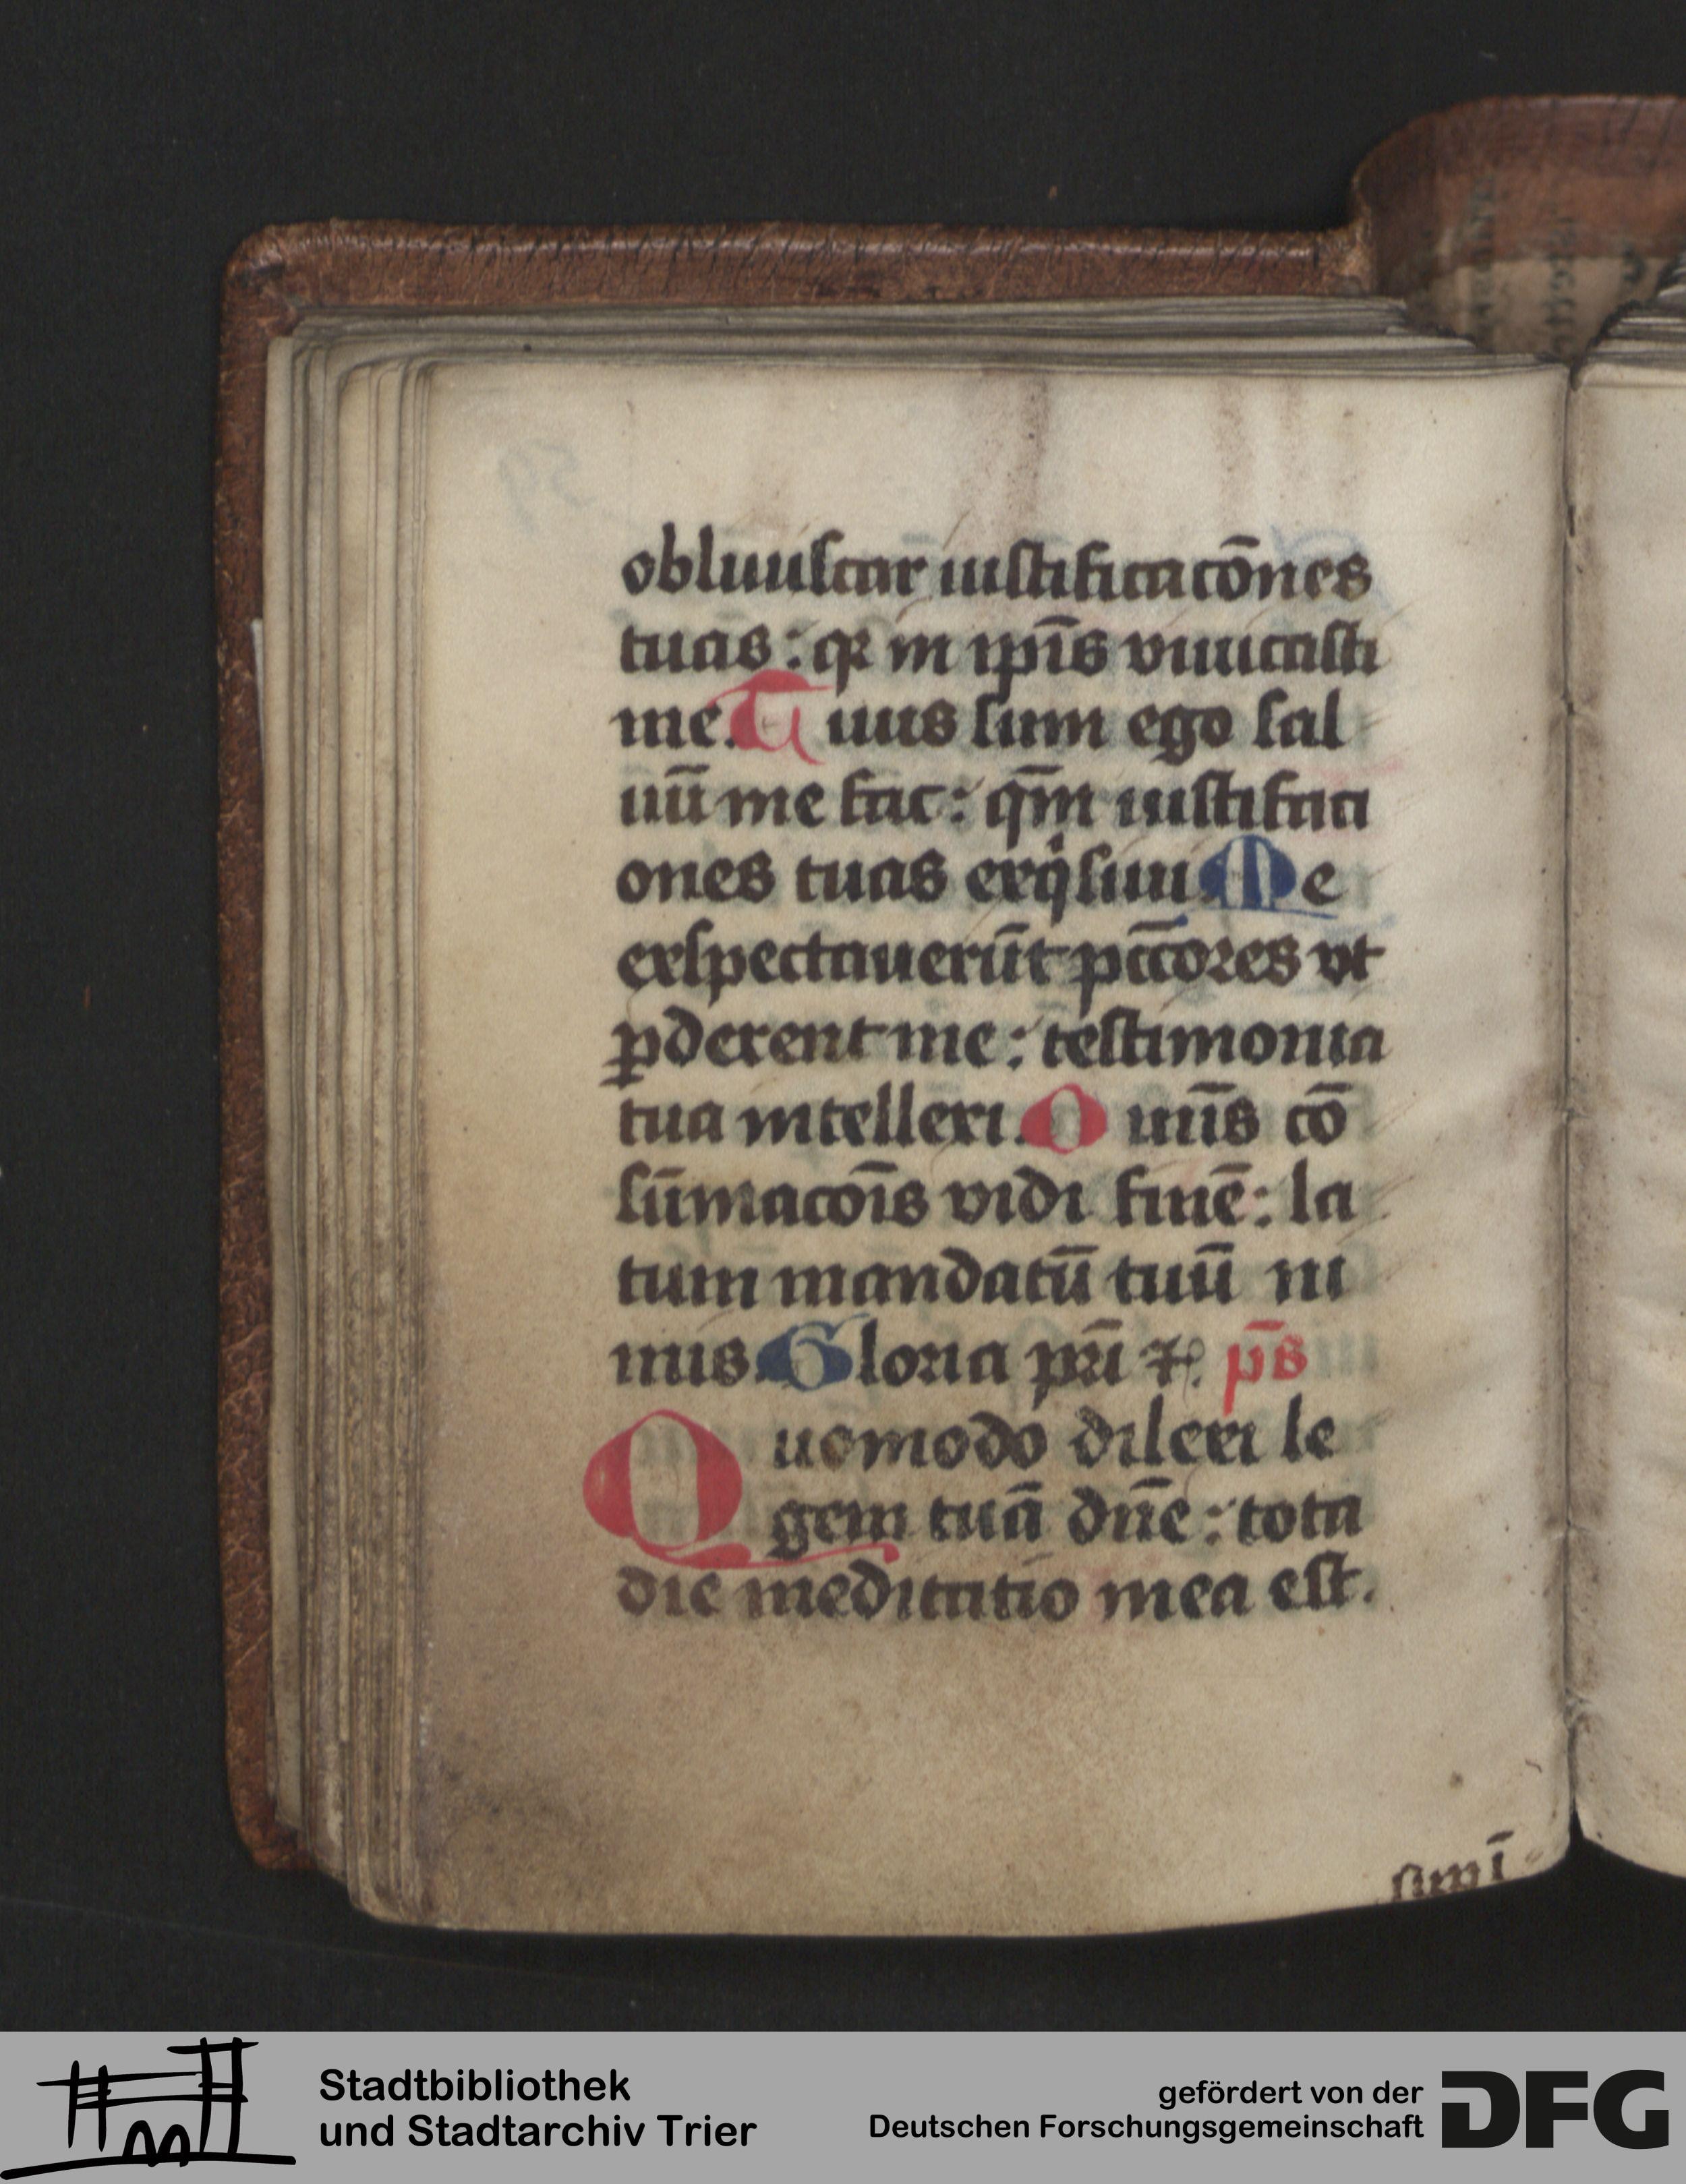 obliuiscar iustificacōnes
tuas : qꝛ in ip̄īs viuicasti
me. Tuus sum ego sal
uū me fac : qm̄ iustificaci
ones tuas exqͥsiui. Me
exspectauerūt pccōres vt
ꝑderent me : testimonia
tua intellexi. Omīs cō
sūmacōis vidi finē : la
tum mandatū tuū ni
mis. Gloria pr̄i ⁊c. p̄s
Quomodo dilexi le
gem tuā dn̄e : tota
die meditatio mea est.
Stadtbibliothek
und Stadtarchiv Trier
gefördert von der
Deutschen Forschungsgemeinschaft
DFG